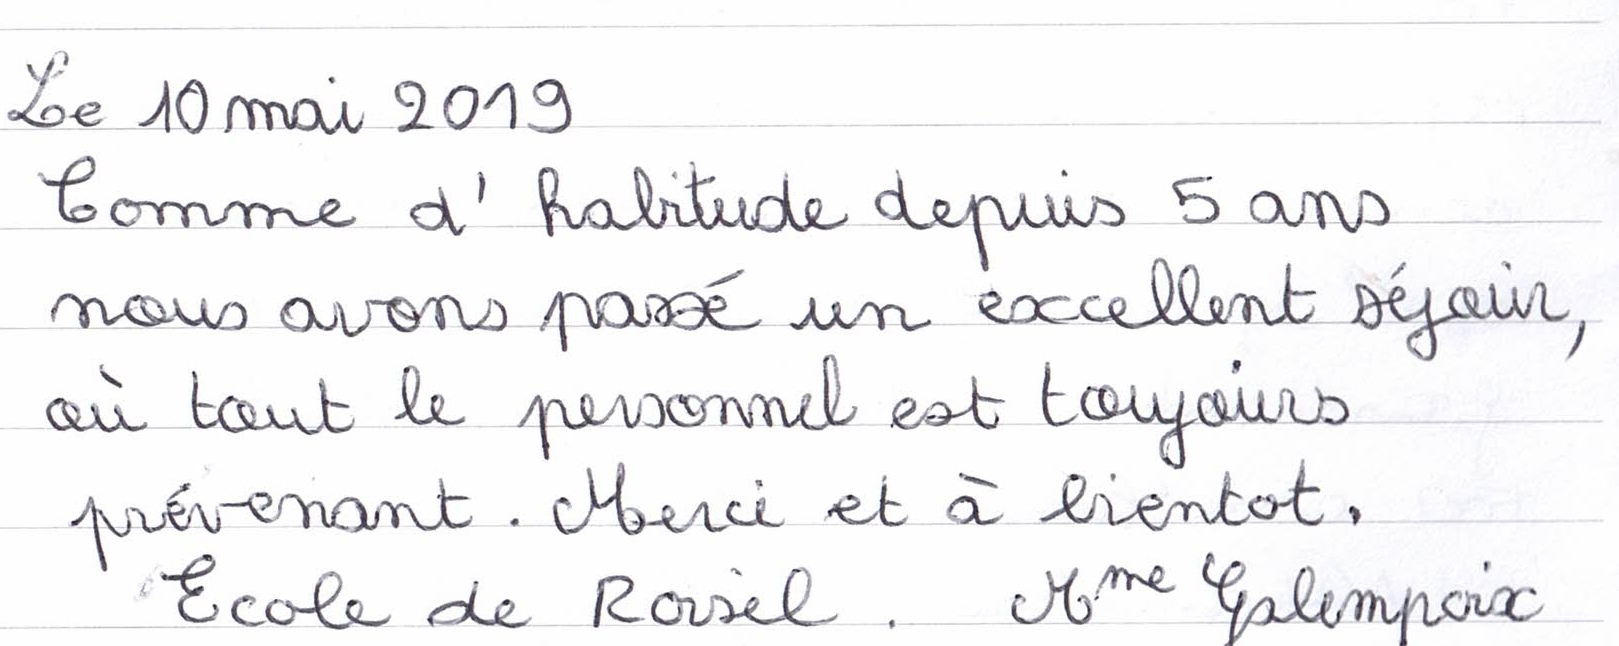 Le 10 mai 2019
Comme d' habitude depuis 5 ans
nous avons passé un excellent séjour,
où tout le personnel est toujours
prévenant. Merci et à bientot.
Ecole de Roisel. Mme Galempoix